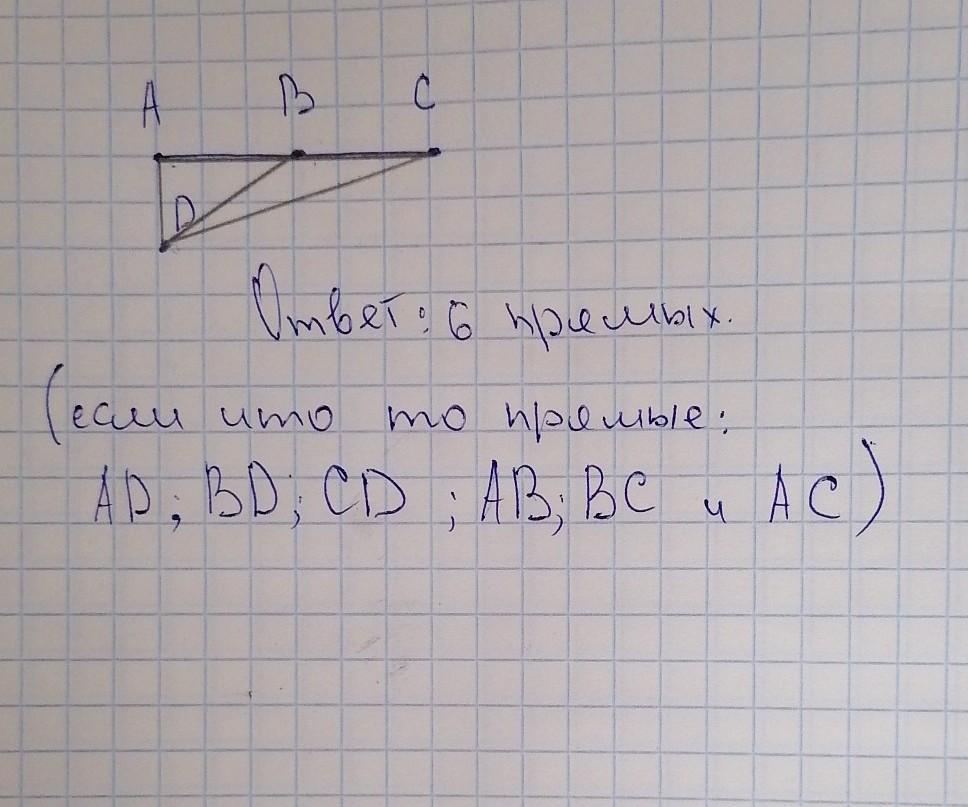 A B C
D
Ответ: 6 прямых.
(если што то прямые:
AD; BD; CD ; AB; BC и AC)